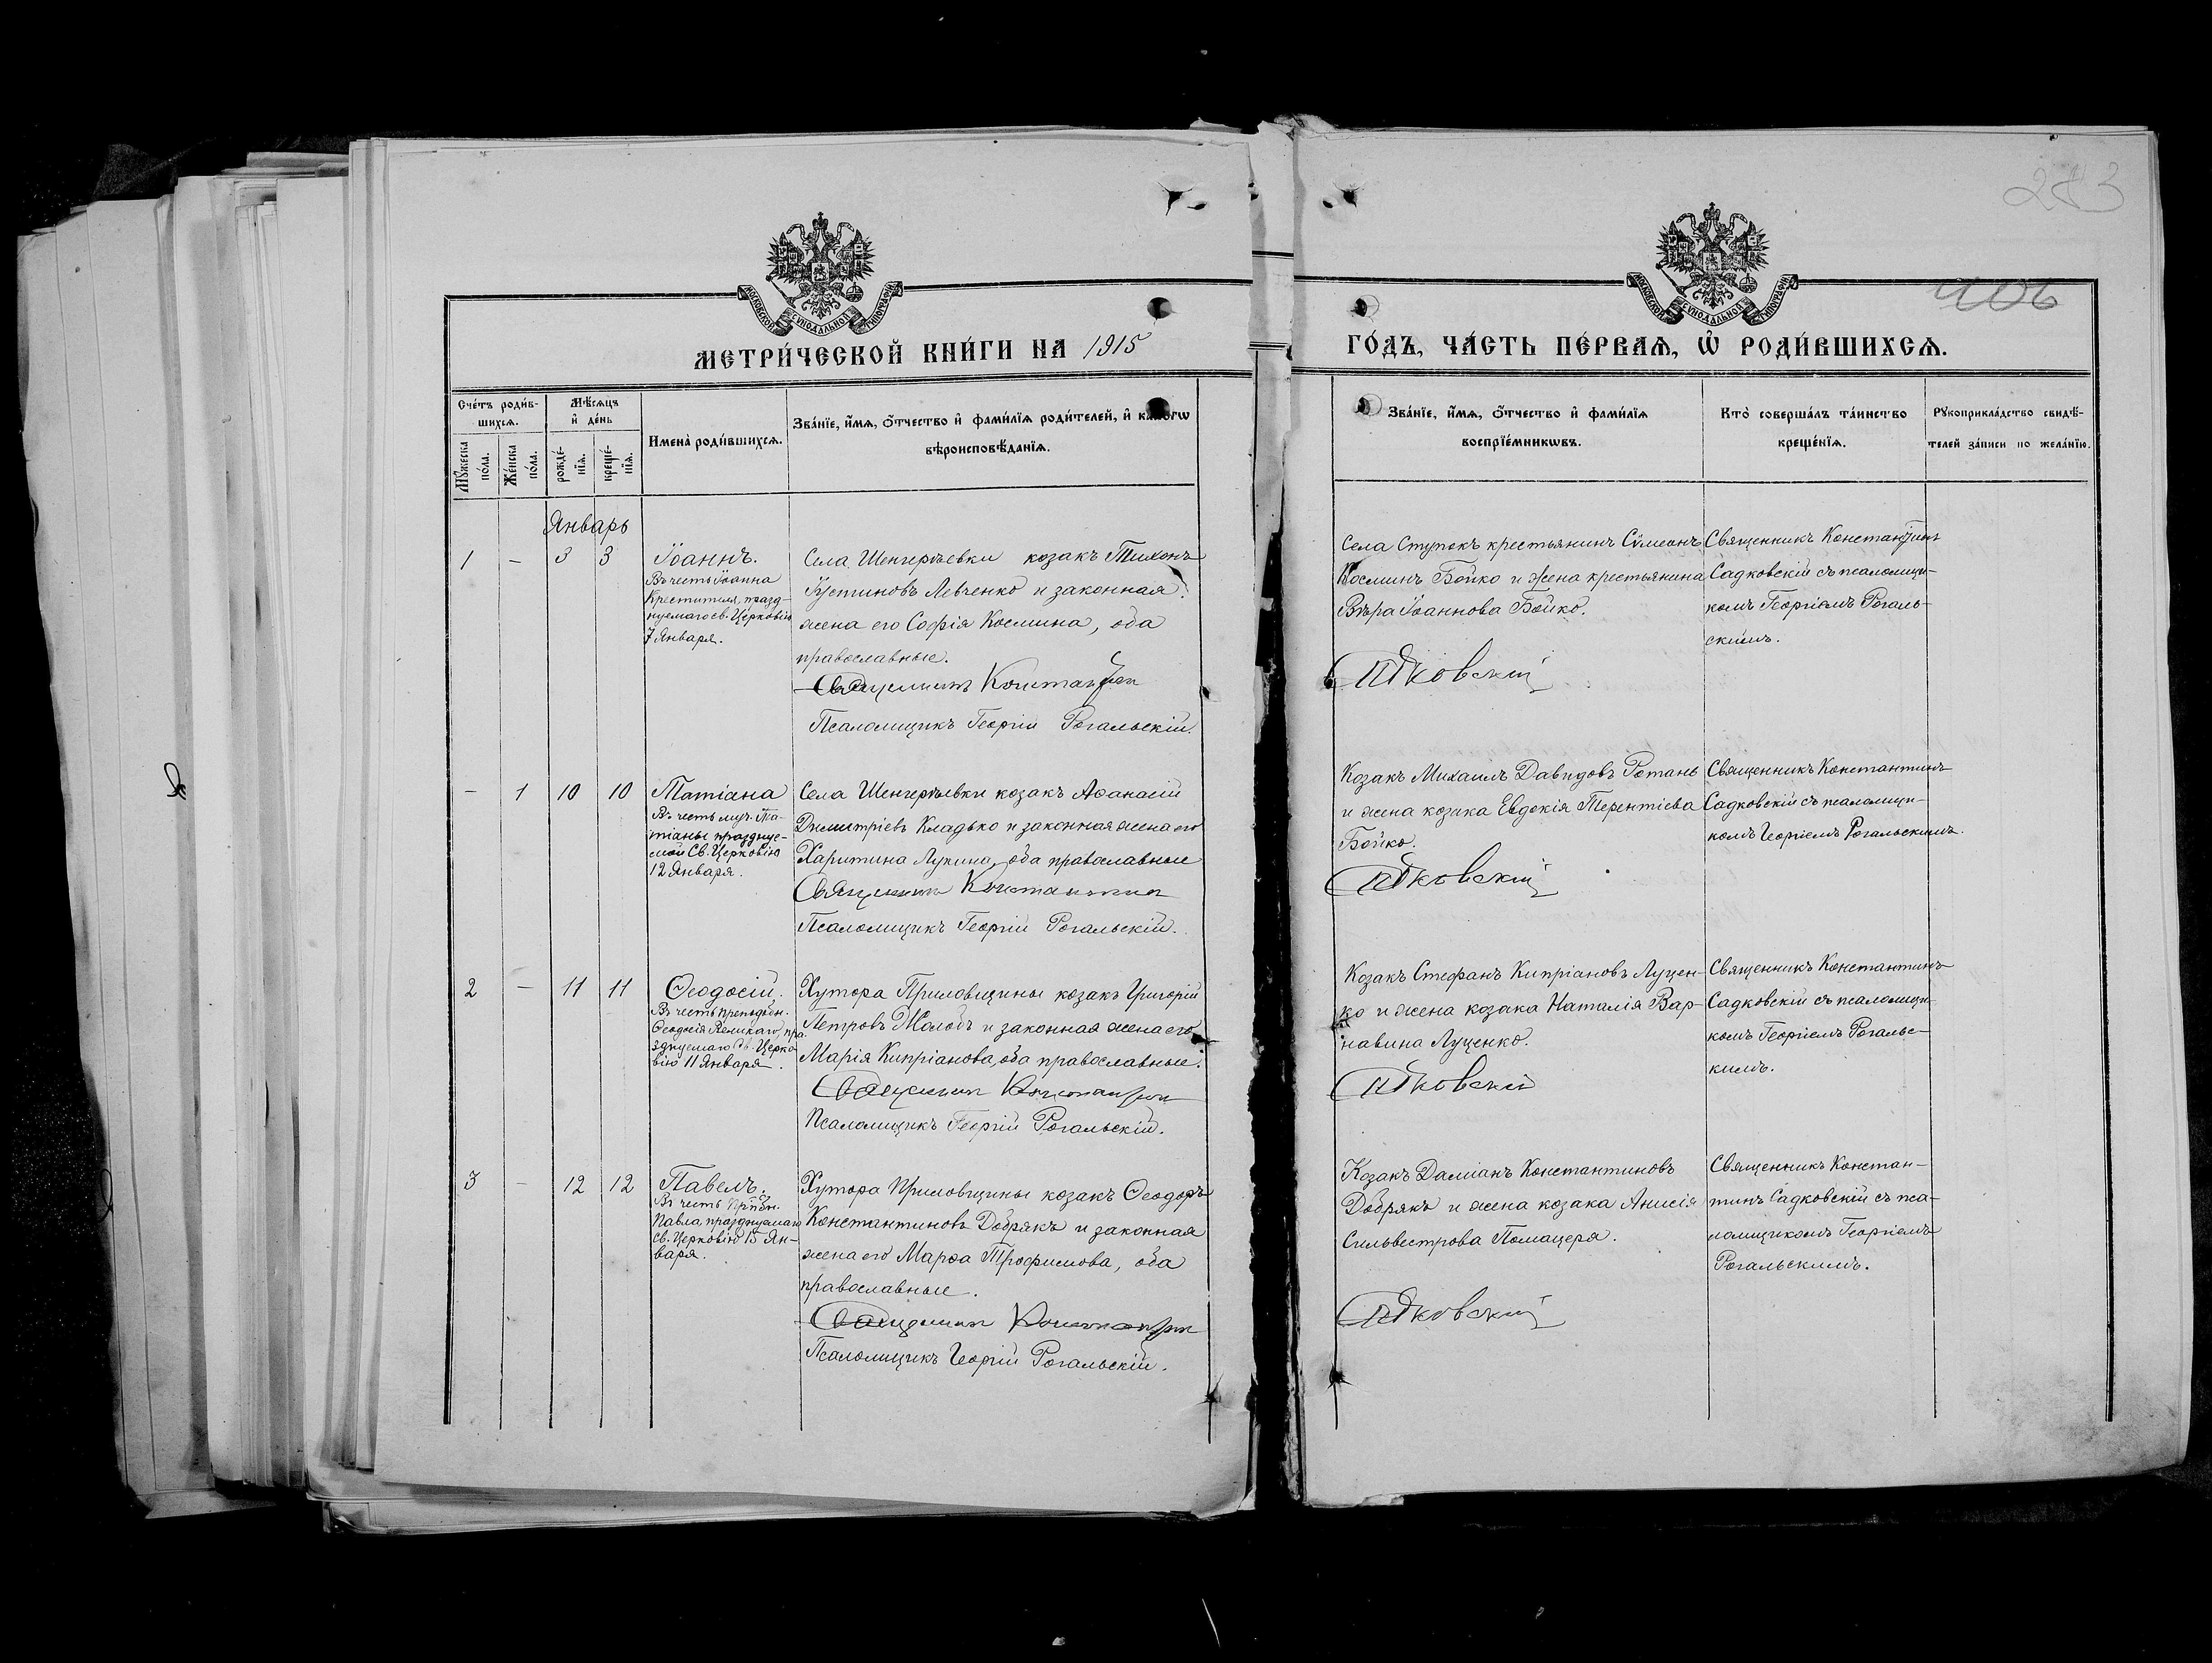 283
406
МОСКОВСКОЙ СѴНОДАЛЬНОЙ ТИПОГРАФІИ
МОСКОВСКОЙ СѴНОДАЛЬНОЙ ТИПОГРАФІИ
МЕТРИ́ЧЕСКОЙ КНИ́ГИ НА 1915
ГО́ДЪ, ЧА́СТЬ ПЕ́РВАѦ, Ѡ҆ РОДИ́ВШИХСѦ.
Сче́тъ роди́в-
шихсѧ.
Мꙋ́жеска по́ла.
Же́нска по́ла.
Мѣ́сѧцъ
и҆ де́нь
рожде́-
нїѧ.
креще́-
нїѧ.
Имена̀ роди́вшихсѧ.
Зва́нїе, и҆́мѧ, ѻ҆́тчество и҆ фами́лїѧ роди́телей, и҆ како́гѡ
вѣроисповѣ́данїѧ.
Зва́нїе, и҆́мѧ, ѻ҆́тчество и҆ фами́лїѧ
воспрїе́мникѡвъ.
Кто̀ соверша́лъ та́инство
креще́нїѧ.
Рꙋкоприкла́дство свидѣ́-
телей за́писи по жела́нїю.
Январь
1 - 3 3
Іоаннъ.
Въ честь Іоанна
Крестителя, празд-
нуемаго св. Церковію
7 Января.
Села Шенгерѣевки козакъ Тихонъ
Іустиновъ Левченко и законная
жена его Софія Космина, оба
православные.
Священникъ Константин
Псаломщикъ Георгій Рогальскій.
Села Ступокъ крестьянинъ Сѵмеонъ
Косминъ Бойко и жена крестьянина
Вѣра Іоаннова Бойко.
Садковскій
Священникъ Константинъ
Садковскій съ псаломщи-
комъ Георгіемъ Рогаль-
скимъ.
- 1 10 10
Татіана
Въ честь муч. Та-
тіаны празднуе-
мой Св. Церковію
12 Января.
Села Шенгерѣевки козакъ Аѳанасій
Димитріевъ Кладько и законная жена его
Харитина Лукина, оба православные
Священникъ Константин
Псаломщикъ Георгій Рогальскій.
Козакъ Михаилъ Давидовъ Ротань
и жена козака Евдокія Терентіева
Бойко.
Садковскій
Священникъ Константинъ
Садковскій съ псаломщи-
комъ Георгіемъ Рогальскимъ.
2 - 11 11
Ѳеодосій.
Въ честь преподобн.
Ѳеодосія Великаго, пра-
зднуемаго Св. Церко-
вію 11 Января.
Хутора Приловщины козакъ Григорій
Петровъ Жолобъ и законная жена его
Марія Кипріанова, оба православные.
Священникъ Константин
Псаломщикъ Георгій Рогальскій.
Козакъ Стефанъ Кипріановъ Луцен-
ко и жена козака Наталія Вар-
навина Луценко.
Садковскій
Священникъ Константинъ
Садковскій съ псаломщи-
комъ Георгіемъ Рогальс-
кимъ.
3 - 12 12
Павелъ.
Въ честь прпбн.
Павла, празднуемаго
св. Церковію 15 Ян-
варя.
Хутора Приловщины козакъ Ѳеодоръ
Константиновъ Добрякъ и законная
жена его Марѳа Трофимова, оба
православные.
Священникъ Константин
Псаломщикъ Георгій Рогальскій.
Козакъ Даміанъ Константиновъ
Добрякъ и жена козака Анисія
Сильвестрова Помацеря.
Садковскій
Священникъ Констан-
тинъ Садковскій съ пса-
ломщикомъ Георгіемъ
Рогальскимъ.